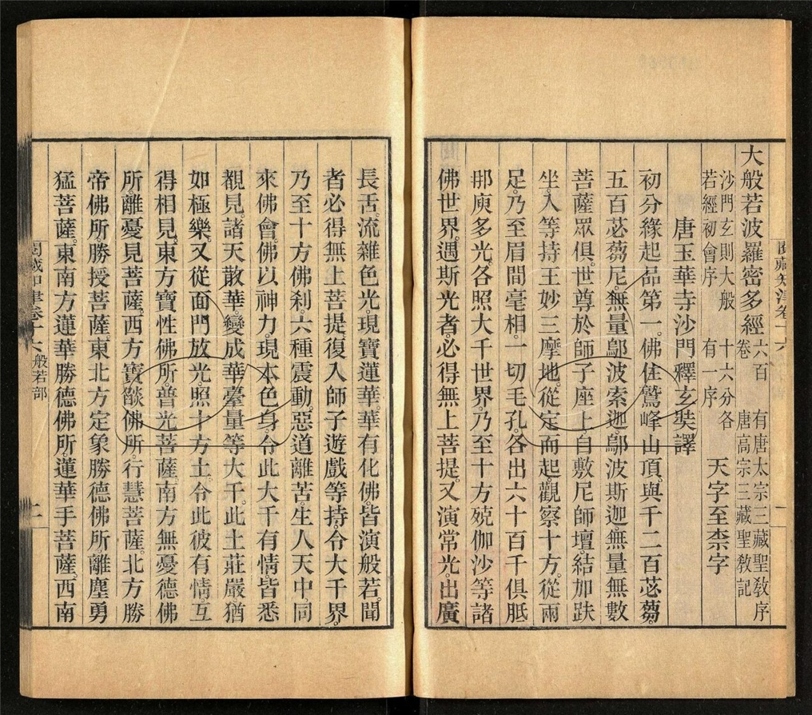 閱藏知津卷十六
一
大般若波羅密多經六百卷 有唐太宗三藏聖教序 唐高宗三藏聖教記
沙門玄則大般若經初會序 十六分各有一序 天字至柰字
唐玉華寺沙門釋玄奘譯
初分緣起品第一。佛住鷲峰山頂。與千二百苾芻。
五百苾芻尼。無量鄔波索迦。鄔波斯迦。無量無數
菩薩眾俱。世尊於師子座上。自敷尼師壇。結加趺
坐。入等持王妙三摩地。從定而起。觀察十方。從兩
足。乃至眉間毫相。一切毛孔。各出六十百千俱胝
那庾多光。各照大千世界。乃至十方殑伽沙等諸
佛世界。遇斯光者。必得無上菩提。又演常光。出廣
長舌。流雜色光。現寶蓮華。華有化佛。皆演般若。聞
者必得無上菩提。復入師子遊戲等持。令大千界。
乃至十方佛刹。六種震動。惡道離苦。生人天中。同
來佛會。佛以神力。現本色身。令此大千有情。皆悉
覩見。諸天散華。變成華臺。量等大千。此土莊嚴。猶
如極樂。又從面門放光。照十方土。令此彼有情。互
得相見。東方寶性佛所。普光菩薩。南方無憂德佛
所。離憂見菩薩。西方寶燄佛所。行慧菩薩。北方勝
帝佛所。勝授菩薩。東北方定象勝德佛所。離塵勇
猛菩薩。東南方蓮華勝德佛所。蓮華手菩薩。西南
閱藏知津卷十六 般若部
二